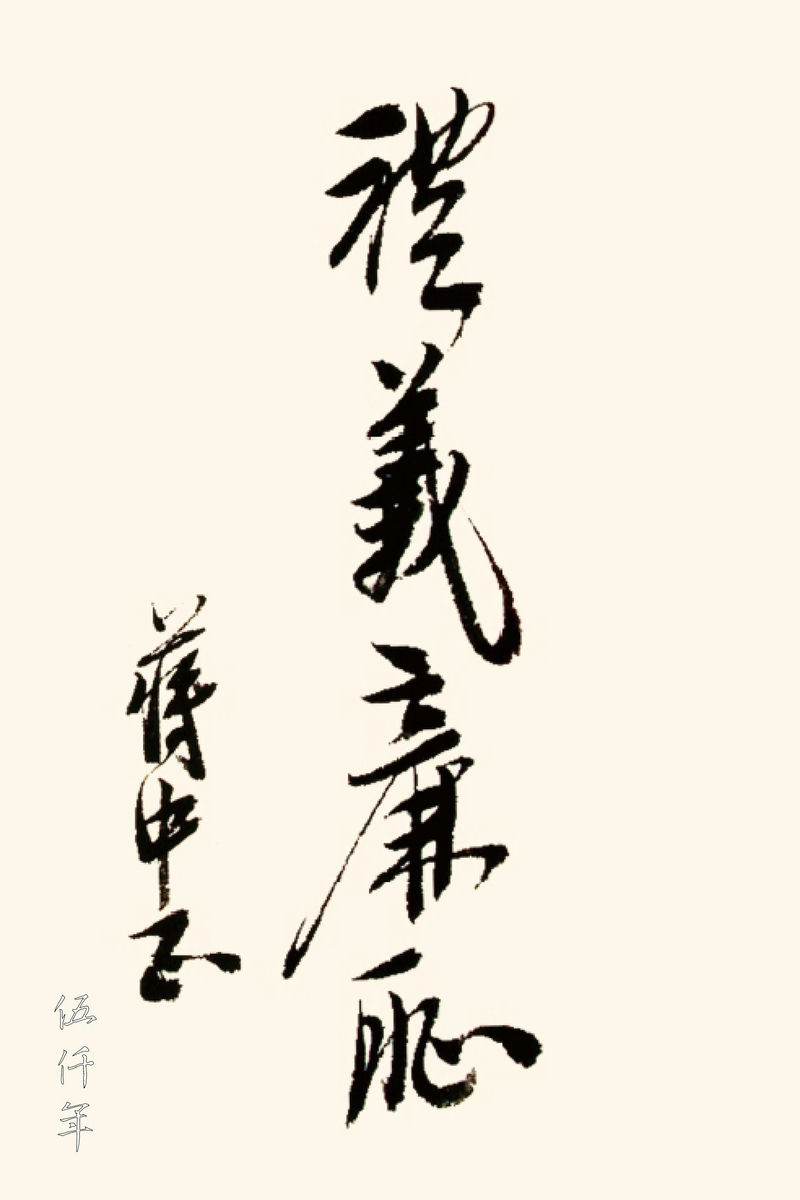 禮義廉恥
蔣中正
伍仟年